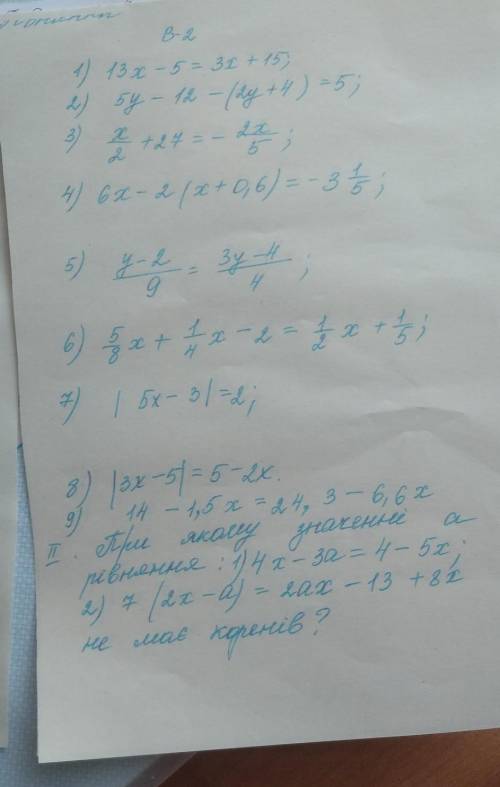 В-2
1) 13x - 5 = 3x + 15;
2) 5y - 12 - (2y + 4) = 5;
3) x/2 + 27 = - 2x/5;
4) 6x - 2(x + 0,6) = - 3 1/5;
5) y-2/9 = 3y-4/4;
6) 5/8 x + 1/4 x - 2 = 1/2 x + 1/5;
7) |5x - 3| = 2;
8) |3x - 5| = 5 - 2x.
9) 14 - 1,5x = 24,3 - 6,6x
II. При якому значенні а
рівняння: 1) 4x - 3a = 4 - 5x;
2) 7(2x - a) = 2ax - 13 + 8x
не має коренів?